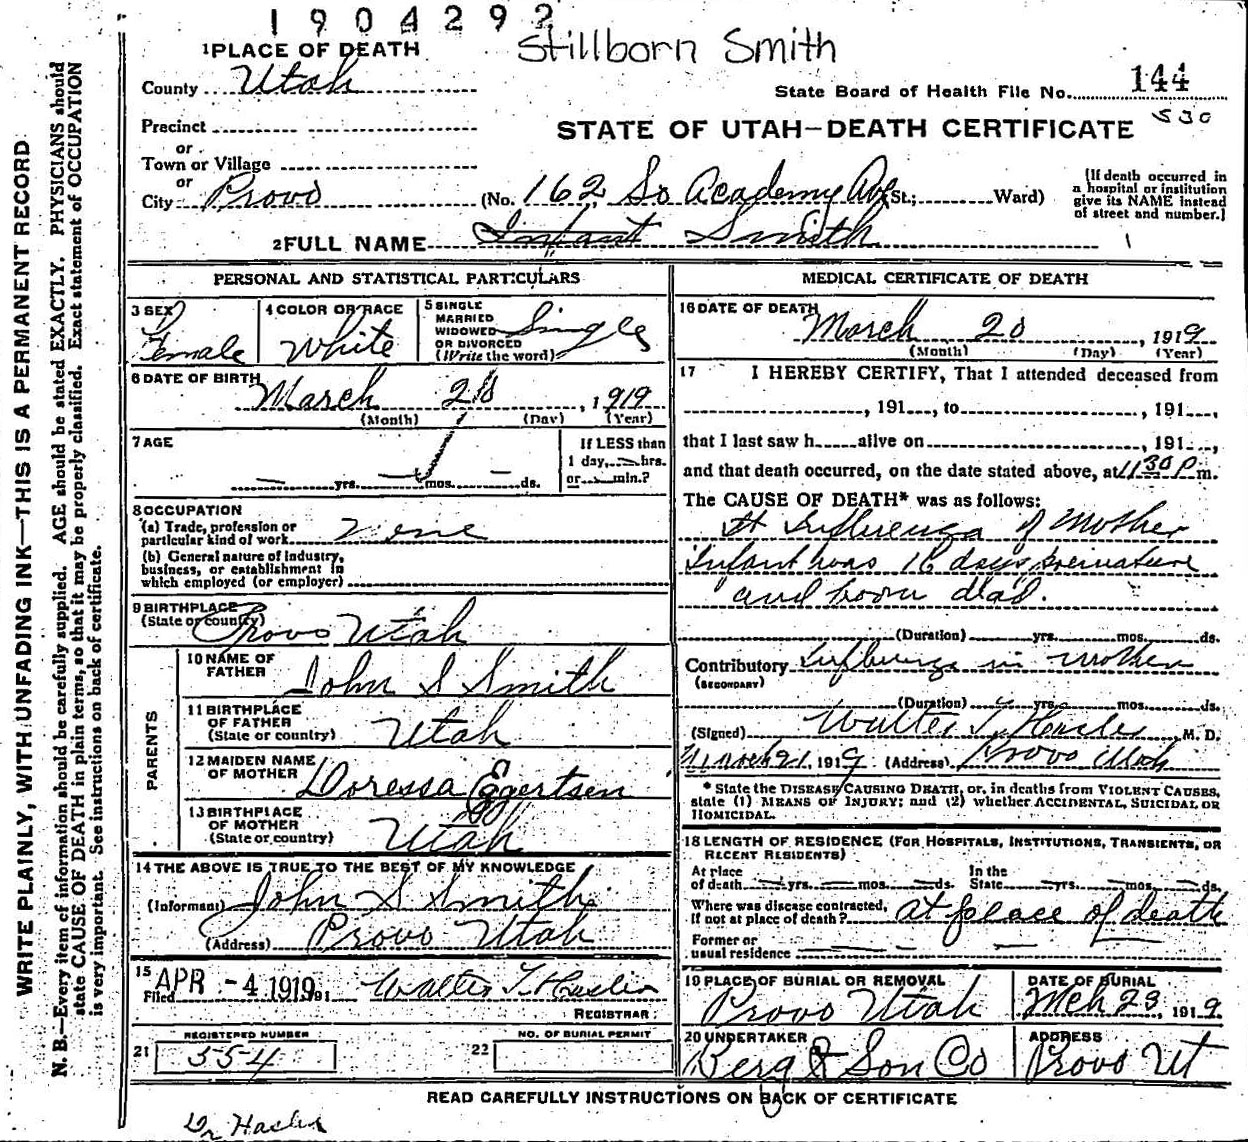 1904292
Stillborn Smith
1 PLACE OF DEATH
County Utah
State Board of Health File No. 144
530
Precinct
or
Town or Village
or
City Provo
STATE OF UTAH—DEATH CERTIFICATE
(No. 162 So Academy Ave St.; Ward)
(If death occurred in
a hospital or institution
give its NAME instead
of street and number.)
2 FULL NAME Infant Smith
PERSONAL AND STATISTICAL PARTICULARS
3 SEX Female
4 COLOR OR RACE White
5 SINGLE
MARRIED
WIDOWED
OR DIVORCED
(Write the word) Single
6 DATE OF BIRTH March 20, 1919
(Month) (Day) (Year)
7 AGE
yrs. mos. ds.
If LESS than
1 day, hrs.
or min.?
8 OCCUPATION
(a) Trade, profession or
particular kind of work
(b) General nature of industry,
business, or establishment in
which employed (or employer)
9 BIRTHPLACE
(State or country) Provo Utah
PARENTS
10 NAME OF
FATHER John S Smith
11 BIRTHPLACE
OF FATHER
(State or country) Utah
12 MAIDEN NAME
OF MOTHER Doressa Eggertsen
13 BIRTHPLACE
OF MOTHER
(State or country) Utah
14 THE ABOVE IS TRUE TO THE BEST OF MY KNOWLEDGE
(Informant) John S Smith
(Address) Provo Utah
15
Filed APR -4 1919 191 Walter T Hasler
REGISTRAR
REGISTERED NUMBER
21 554
NO. OF BURIAL PERMIT
22
MEDICAL CERTIFICATE OF DEATH
16 DATE OF DEATH March 20, 1919
(Month) (Day) (Year)
17 I HEREBY CERTIFY, That I attended deceased from
, 191 , to , 191 ,
that I last saw h alive on , 191 ,
and that death occurred, on the date stated above, at 11 30 P m.
The CAUSE OF DEATH* was as follows:
Influenza of Mother
Infant was days premature
and born dead.
(Duration) yrs. mos. ds.
Contributory Influenza in mother
(SECONDARY)
(Duration) yrs. mos. ds.
(Signed) Walter T Hasler M. D.
March 21, 1919 (Address) Provo Utah
* State the DISEASE CAUSING DEATH, or, in deaths from VIOLENT CAUSES,
state (1) MEANS OF INJURY; and (2) whether ACCIDENTAL, SUICIDAL OR
HOMICIDAL.
18 LENGTH OF RESIDENCE (FOR HOSPITALS, INSTITUTIONS, TRANSIENTS, OR
RECENT RESIDENTS)
At place
of death yrs. mos. ds.
In the
State yrs. mos. ds.
Where was disease contracted,
if not at place of death? at place of death
Former or
usual residence
19 PLACE OF BURIAL OR REMOVAL
Provo Utah
DATE OF BURIAL
Mch 23, 1919
20 UNDERTAKER
Berg & Son Co
ADDRESS
Provo Ut
READ CAREFULLY INSTRUCTIONS ON BACK OF CERTIFICATE
Dr Hasler
WRITE PLAINLY, WITH UNFADING INK—THIS IS A PERMANENT RECORD
N. B.—Every item of information should be carefully supplied. AGE should be stated EXACTLY. PHYSICIANS should
state CAUSE OF DEATH in plain terms, so that it may be properly classified. Exact statement of OCCUPATION
is very important. See instructions on back of certificate.